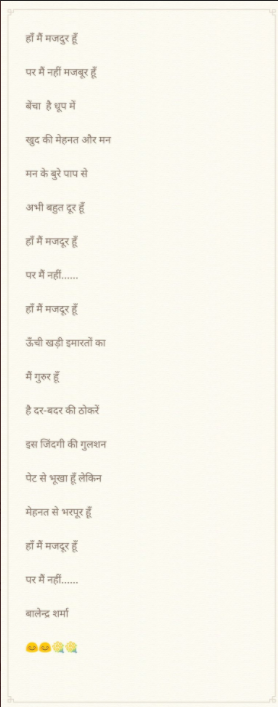 हाँ मैं मजदुर हूँ
पर मैं नहीं मजबूर हूँ
बेंचा है धूप में
खुद की मेहनत और मन
मन के बुरे पाप से
अभी बहुत दूर हूँ
हाँ मैं मजदुर हूँ
पर मैं नहीं......
हाँ मैं मजदुर हूँ
ऊँची खड़ी इमारतों का
मैं गुरुर हूँ
है दर-बदर की ठोकरें
इस जिंदगी की गुलशन
पेट से भूखा हूँ लेकिन
मेहनत से भरपूर हूँ
हाँ मैं मजदुर हूँ
पर मैं नहीं......
बालेन्द्र शर्मा
😊😊💐💐